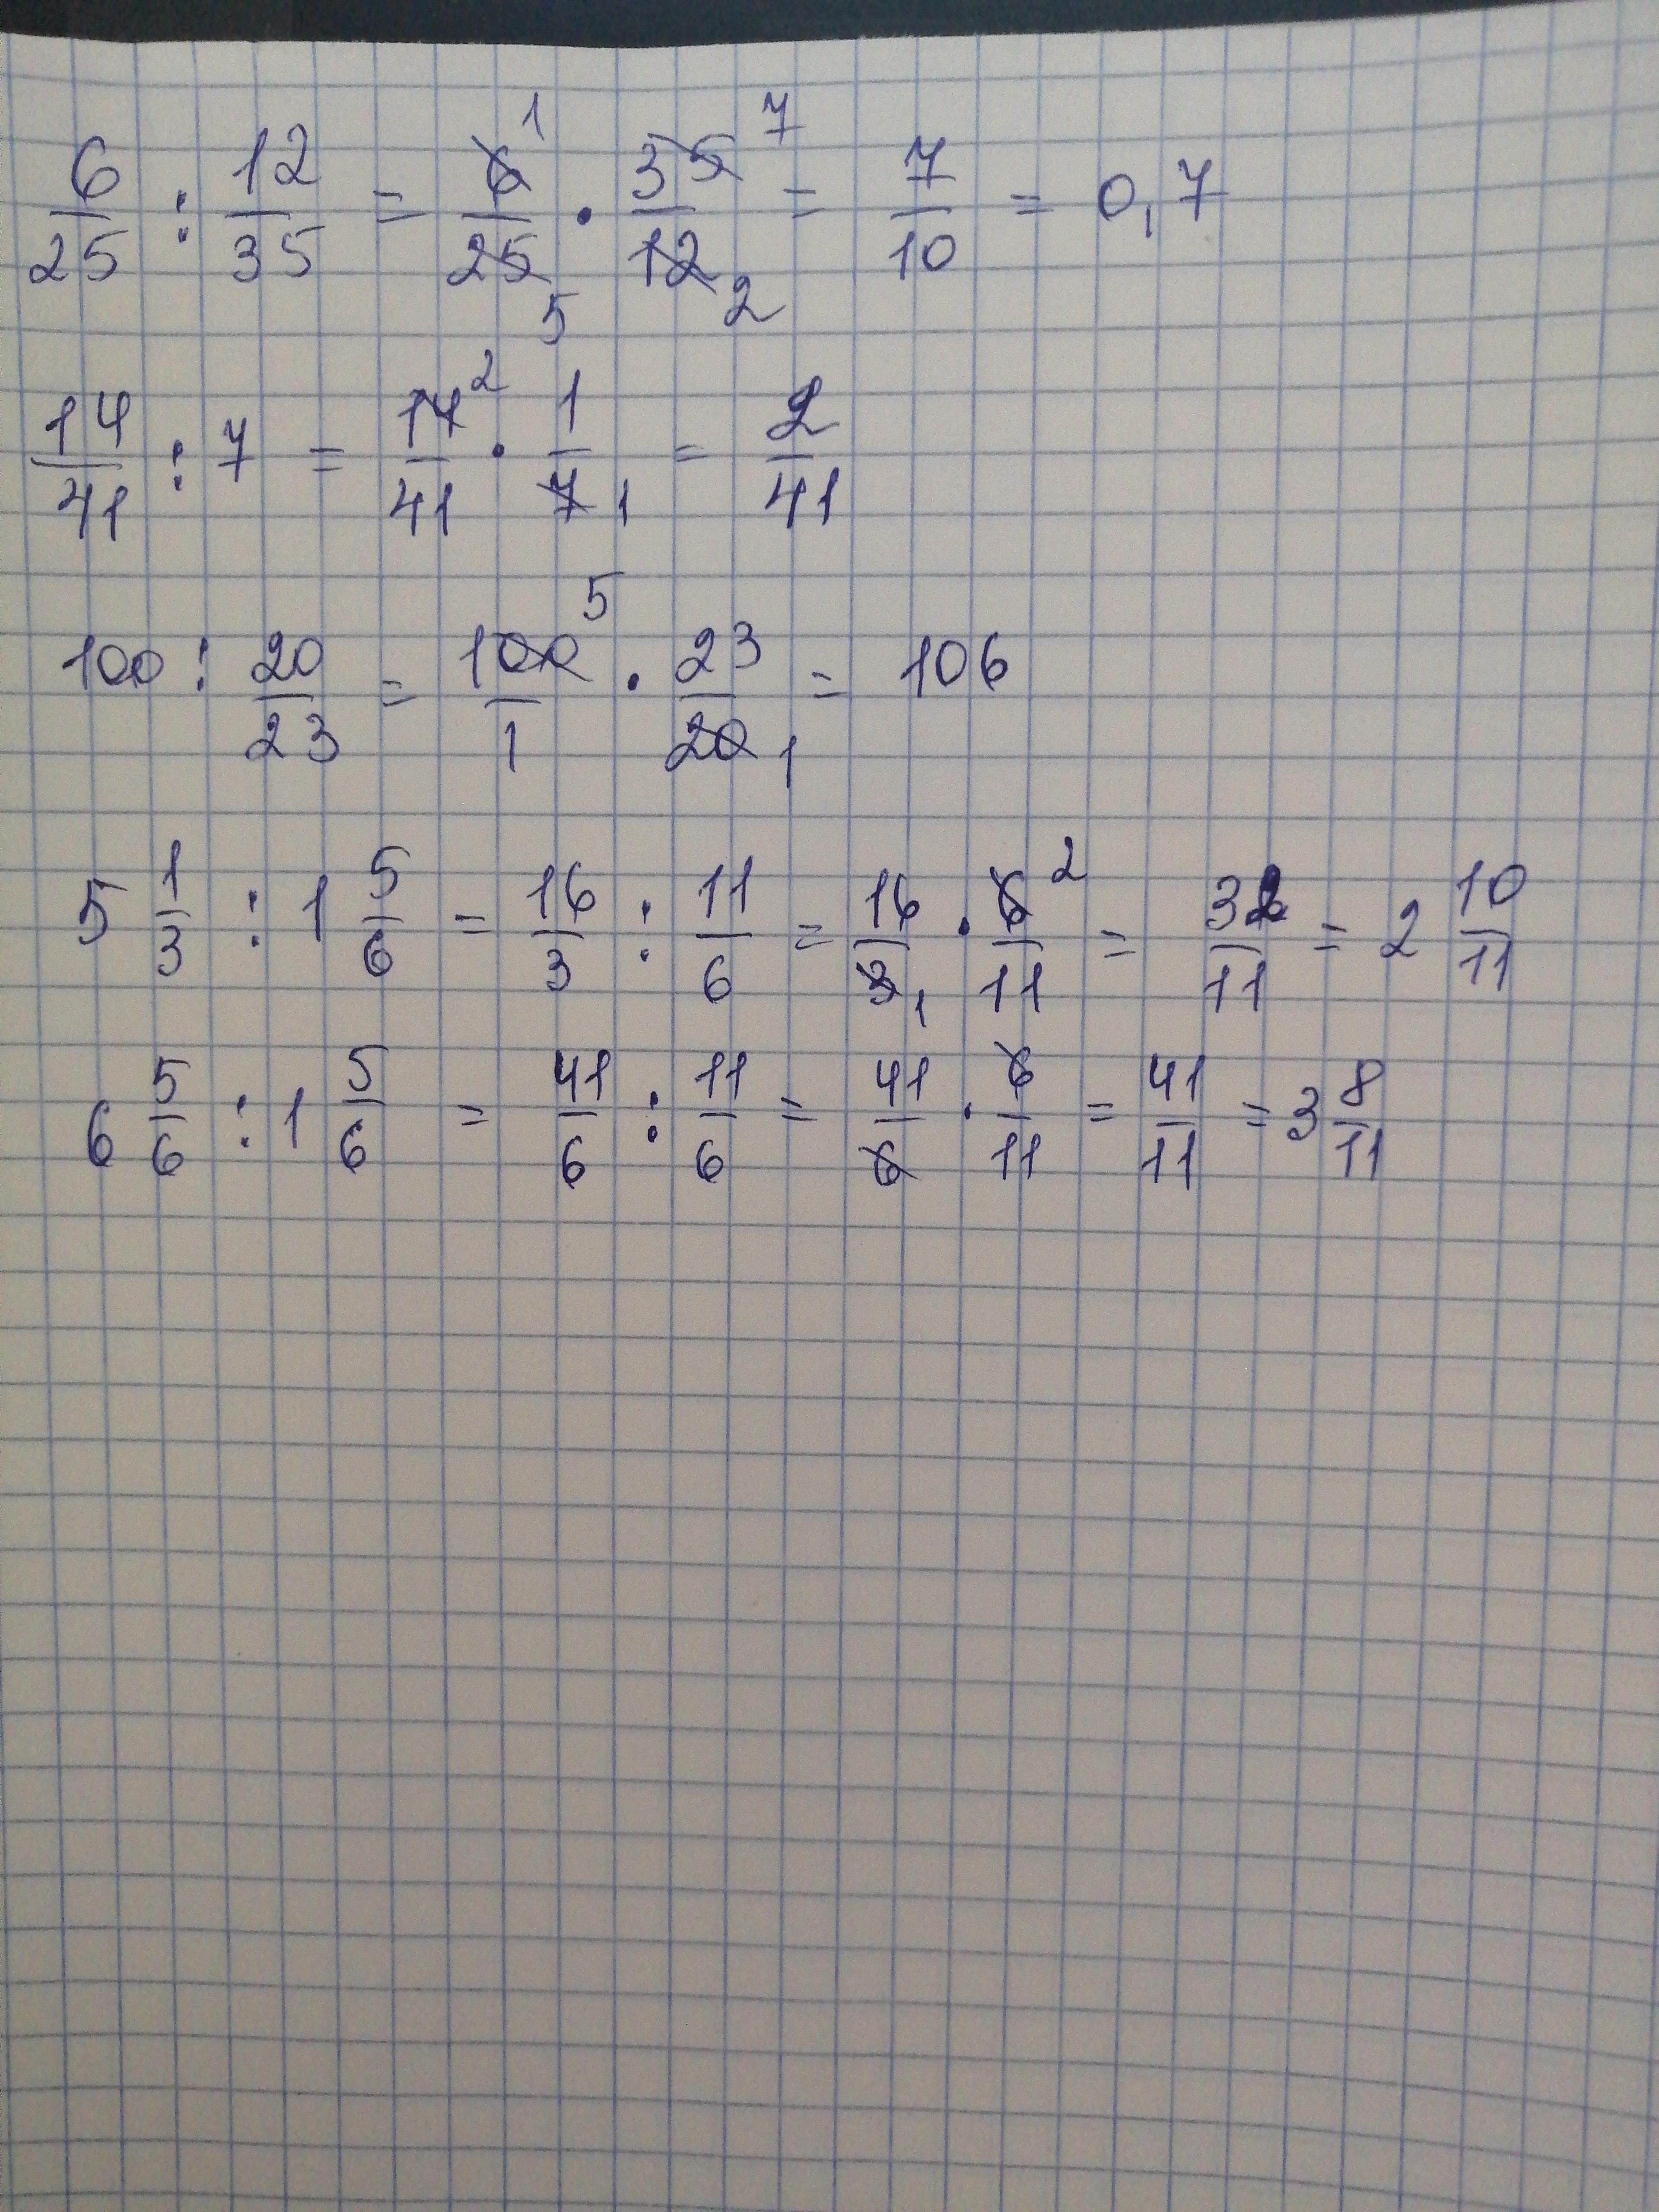 6/25 : 12/35 = 6/25 1 5 · 35/12 7 2 = 7/10 = 0,7
14/41 : 7 = 14/41 2 · 1/7 1 = 2/41
100 : 20/23 = 100/1 5 · 23/20 1 = 106
5 1/3 : 1 5/6 = 16/3 : 11/6 = 16/3 1 · 6/11 2 = 32/11 = 2 10/11
6 5/6 : 1 5/6 = 41/6 : 11/6 = 41/6 · 6/11 = 41/11 = 3 8/11